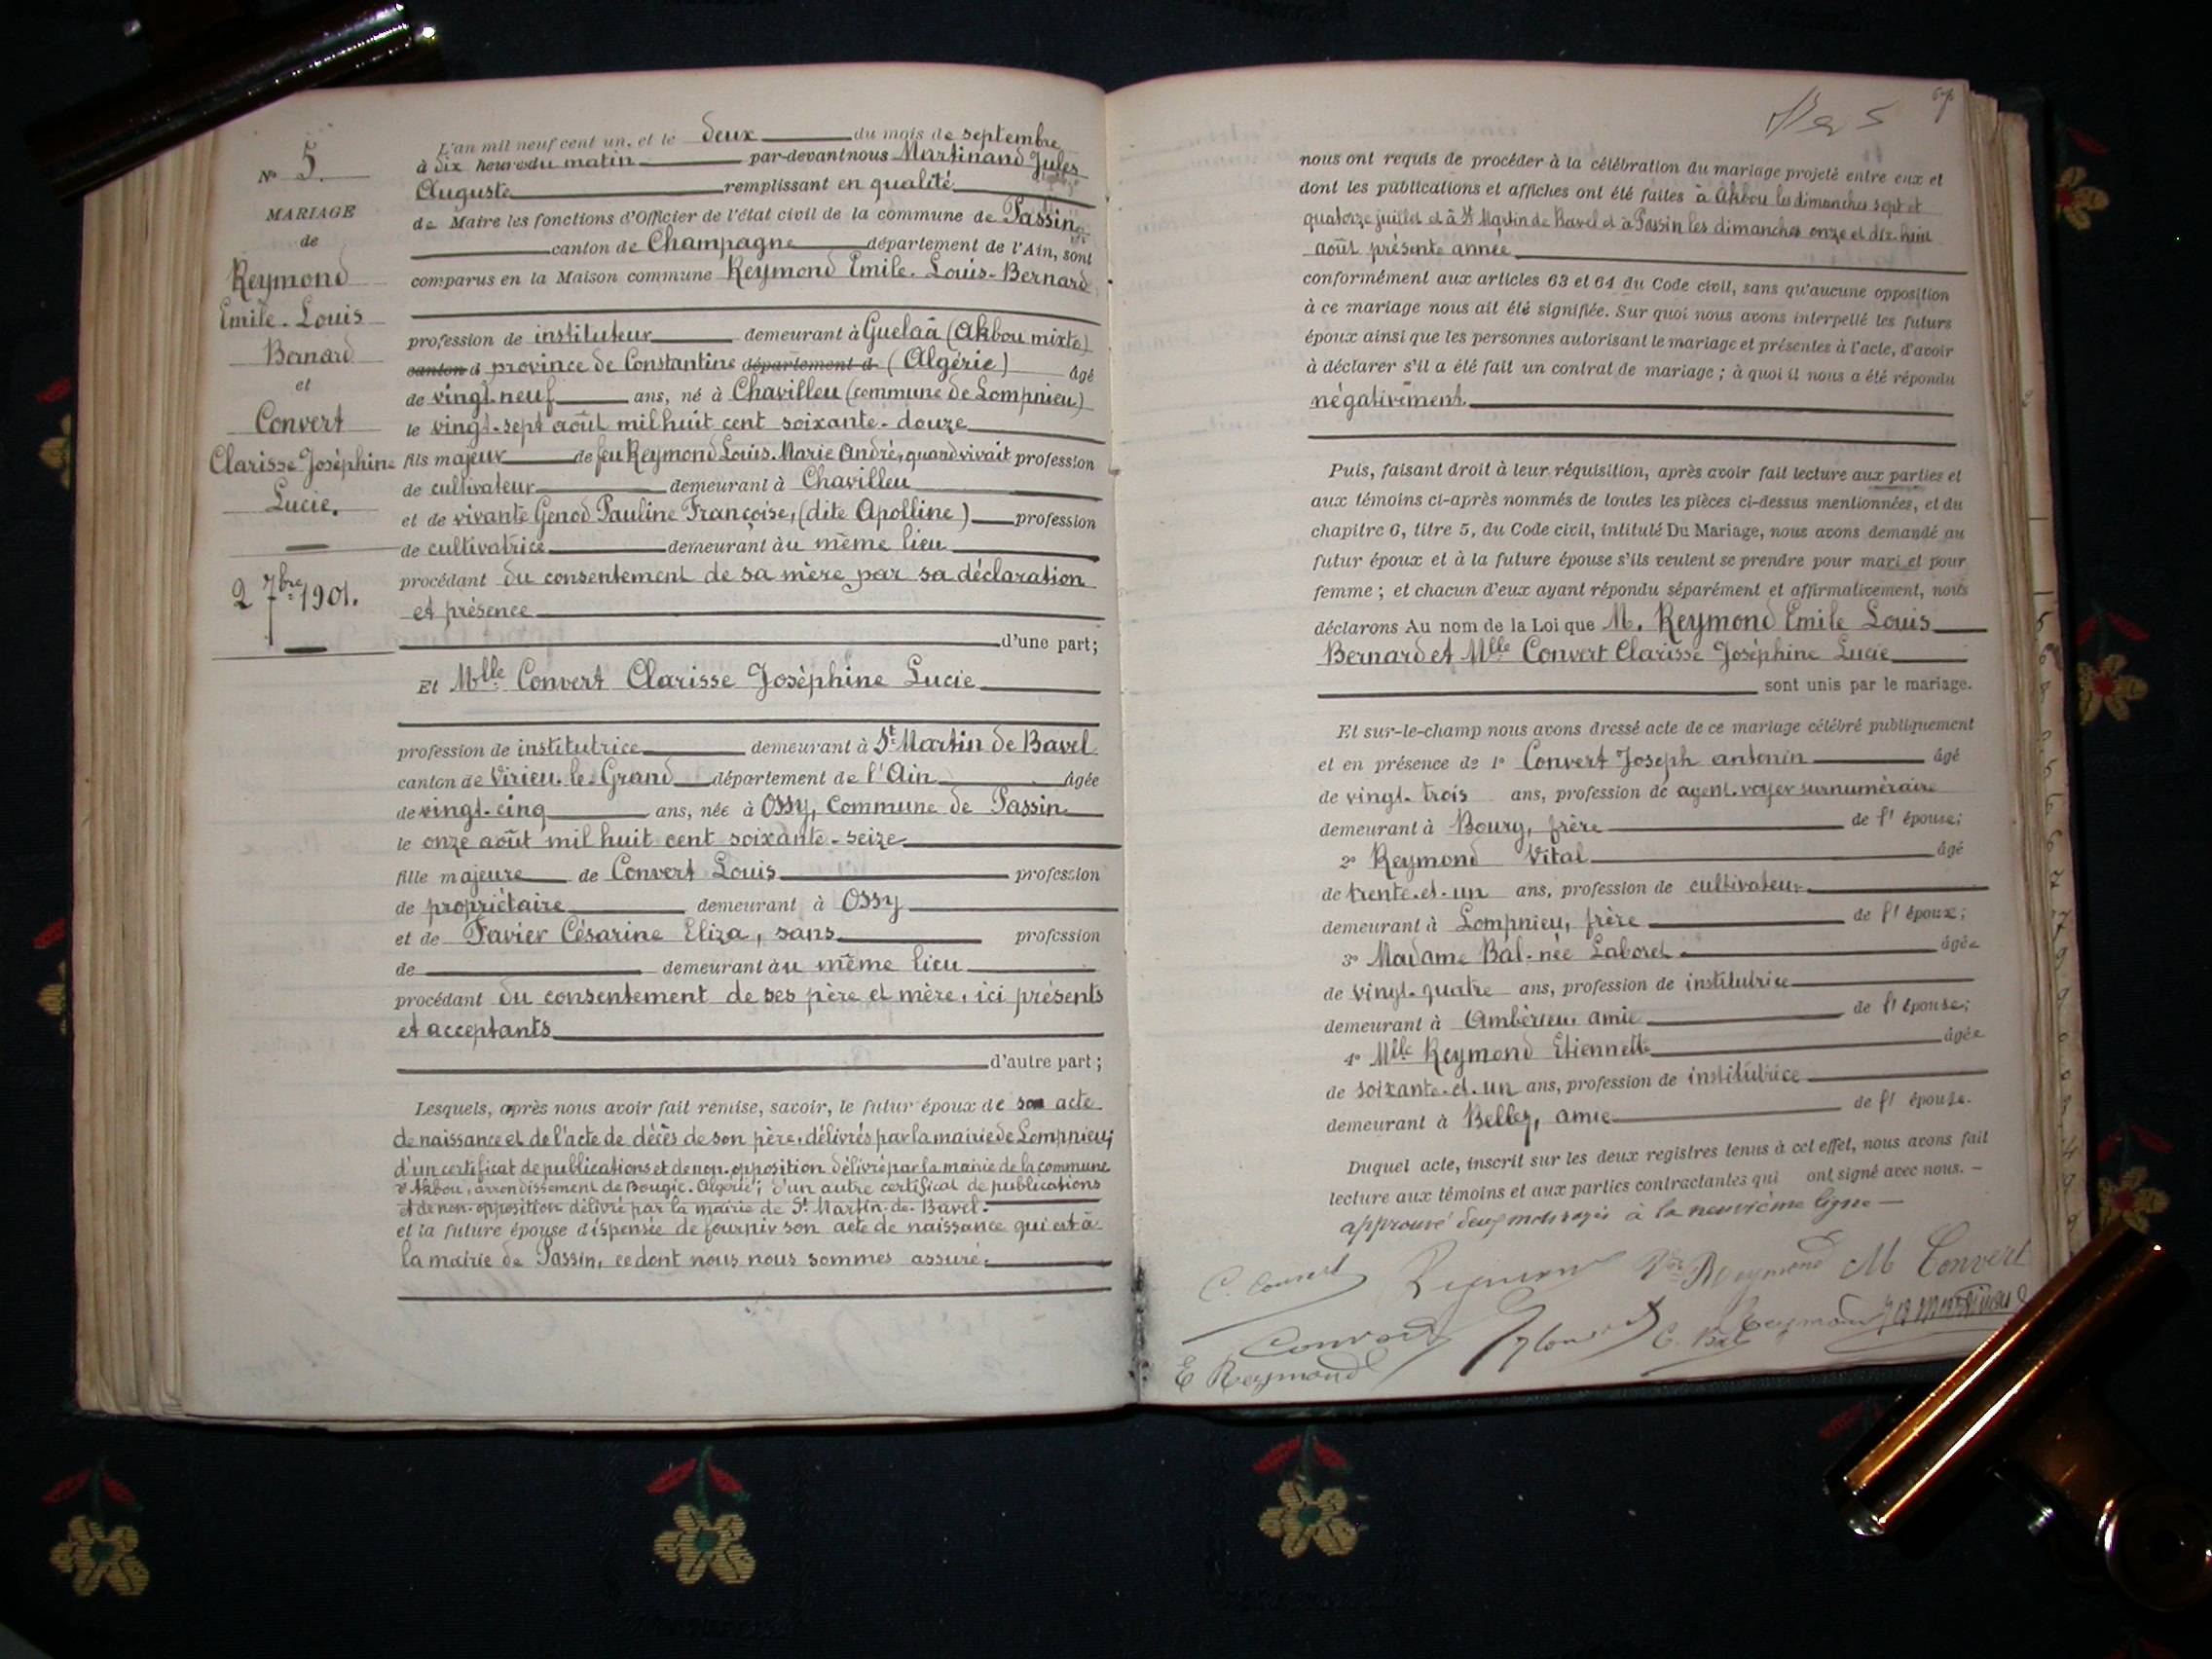 N° 5.
MARIAGE
de
Reymond
Emile. Louis
Bernard
et
Convert
Clarisse Joséphine
Lucie.
2 7bre 1901.
L'an mil neuf cent un, et le deux du mois de septembre
à dix heures du matin par-devant nous Martinand Jules
Auguste remplissant en qualité
de Maire les fonctions d'Officier de l'état civil de la commune de Passin
canton de Champagne département de l'Ain, sont
comparus en la Maison commune Reymond Emile. Louis-Bernard
profession de instituteur demeurant à Guelaâ (Akbou mixte)
canton d province de Constantine département d (Algérie) âgé
de vingt-neuf ans, né à Chavilleu (commune de Lompnieu)
le vingt-sept août mil huit cent soixante-douze
fils majeur de feu Reymond Louis. Marie André, quand vivait profession
de cultivateur demeurant à Chavilleu
et de vivante Genod Pauline Françoise, (dite Apolline) profession
de cultivatrice demeurant au même lieu
procédant du consentement de sa mère par sa déclaration
et présence
d'une part;
Et Mlle Convert Clarisse Joséphine Lucie
profession de institutrice demeurant à St Martin de Bavel
canton de Virieu-le-Grand département de l'Ain âgée
de vingt-cinq ans, née à Ossy, Commune de Passin
le onze août mil huit cent soixante-seize
fille majeure de Convert Louis profession
de propriétaire demeurant à Ossy
et de Favier Césarine Eliza, sans profession
de demeurant au même lieu
procédant du consentement de ses père et mère, ici présents
et acceptants
d'autre part;
Lesquels, après nous avoir fait remise, savoir, le futur époux de son acte
de naissance et de l'acte de décès de son père, délivrés par la mairie de Lompnieu;
d'un certificat de publications et de non-opposition délivré par la mairie de la commune
d'Akbou, arrondissement de Bougie. Algérie; d'un autre certificat de publications
et de non-opposition délivré par la mairie de St Martin-de-Bavel.
et la future épouse dispensée de fournir son acte de naissance qui est à
la mairie de Passin, ce dont nous nous sommes assuré.
nous ont requis de procéder à la célébration du mariage projeté entre eux et
dont les publications et affiches ont été faites à Akbou les dimanches sept et
quatorze juillet et à St Martin de Bavel et à Passin les dimanches onze et dix-huit
août présente année
conformément aux articles 63 et 64 du Code civil, sans qu'aucune opposition
à ce mariage nous ait été signifiée. Sur quoi nous avons interpellé les futurs
époux ainsi que les personnes autorisant le mariage et présentes à l'acte, d'avoir
à déclarer s'il a été fait un contrat de mariage; à quoi il nous a été répondu
négativement.
Puis, faisant droit à leur réquisition, après avoir fait lecture aux parties et
aux témoins ci-après nommés de toutes les pièces ci-dessus mentionnées, et du
chapitre 6, titre 5, du Code civil, intitulé Du Mariage, nous avons demandé au
futur époux et à la future épouse s'ils veulent se prendre pour mari et pour
femme; et chacun d'eux ayant répondu séparément et affirmativement, nous
déclarons Au nom de la Loi que M. Reymond Emile Louis
Bernard et Mlle Convert Clarisse Joséphine Lucie
sont unis par le mariage.
Et sur-le-champ nous avons dressé acte de ce mariage célébré publiquement
et en présence de 1° Convert Joseph antonin âgé
de vingt-trois ans, profession de agent-voyer surnuméraire
demeurant à Bourg, frère de l'épouse;
2° Reymond Vital âgé
de trente-et-un ans, profession de cultivateur
demeurant à Lompnieu, frère de l'époux;
3° Madame Bal-née Laboret âgée
de vingt-quatre ans, profession de institutrice
demeurant à Ambérieu, amie de l'épouse;
4° Mlle Reymond Etiennette âgée
de soixante-et-un ans, profession de institutrice
demeurant à Belley, amie de l'épouse.
Duquel acte, inscrit sur les deux registres tenus à cet effet, nous avons fait
lecture aux témoins et aux parties contractantes qui ont signé avec nous.
approuvé deux mots rayés à la neuvième ligne
C. Convert Reymond Reymond M Convert
Convert C. Bal Reymond
E Reymond